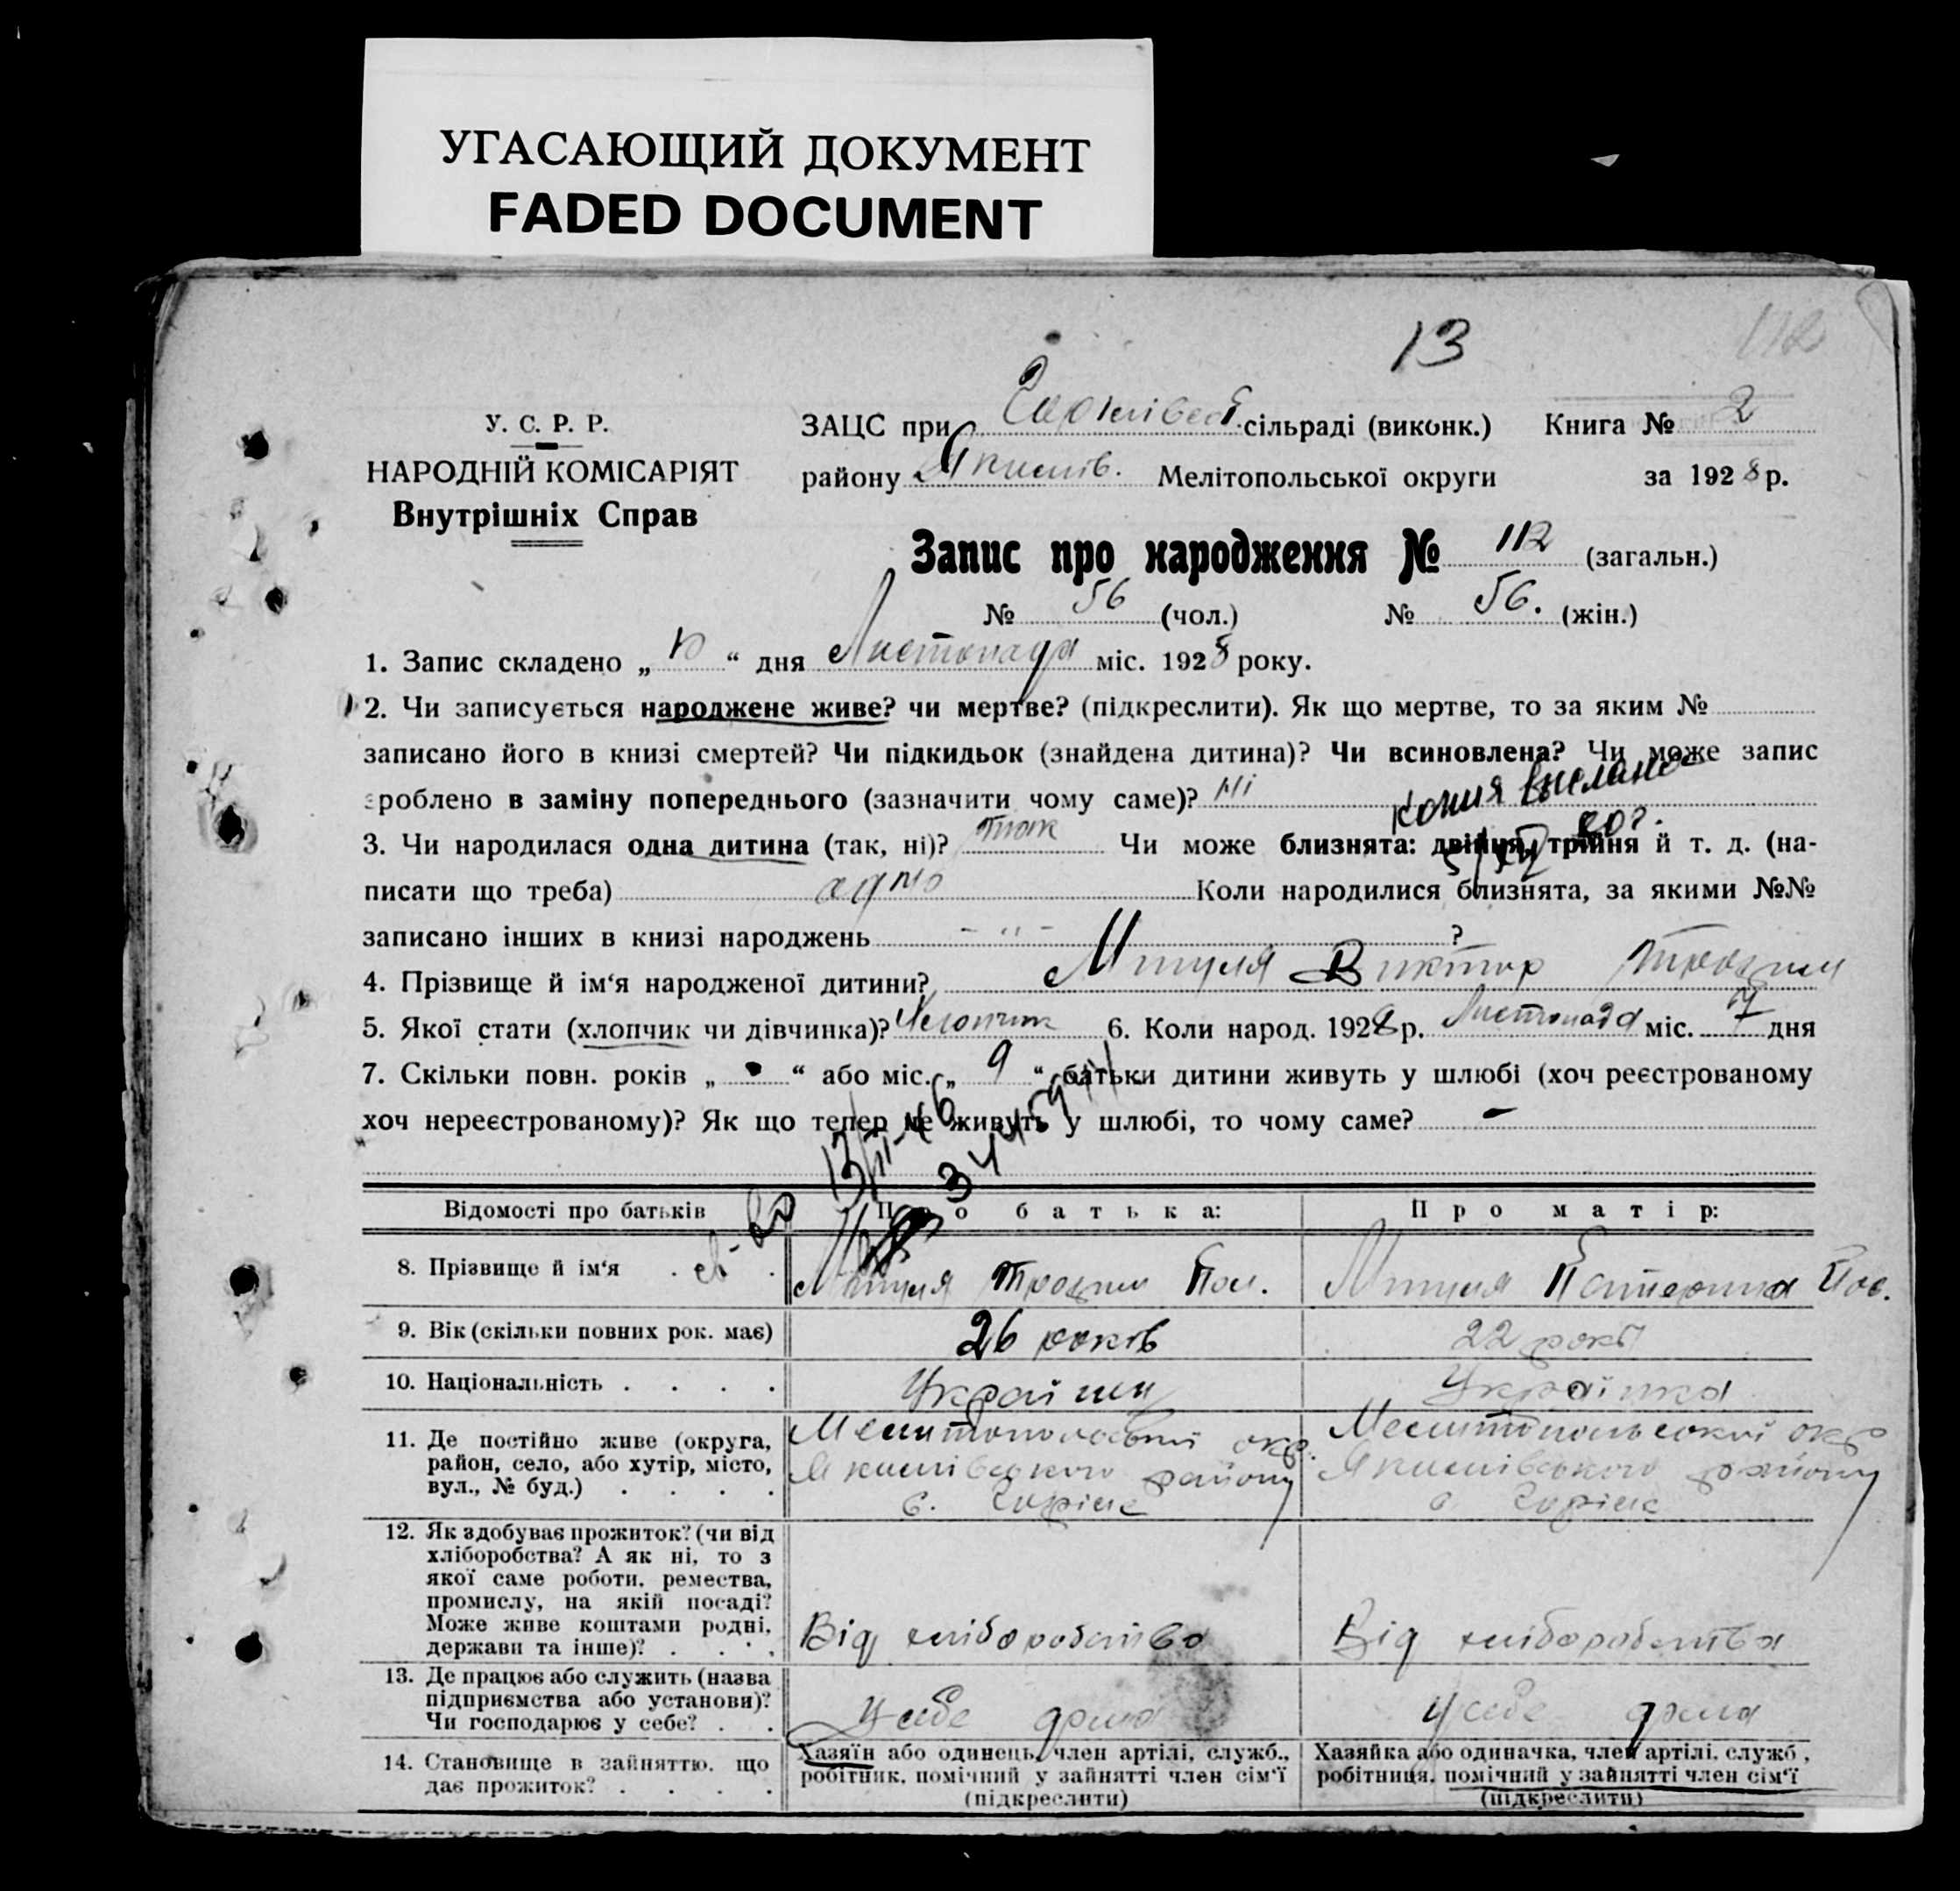 УГАСАЮЩИЙ ДОКУМЕНТ
FADED DOCUMENT
13
112
У. С. Р. Р.
НАРОДНІЙ КОМІСАРІЯТ
Внутрішніх Справ
ЗАЦС при сільраді (виконк.) Книга № 2
району Якимів. Мелітопольської округи за 1928 р.
Запис про народження № 112 (загальн.)
№ 56 (чол.) № 56. (жін.)
1. Запис складено „ 10 “ дня Листопада міс. 1928 року.
2. Чи записується народжене живе? чи мертве? (підкреслити). Як що мертве, то за яким №
записано його в книзі смертей? Чи підкидьок (знайдена дитина)? Чи всиновлена? Чи може запис
зроблено в заміну попереднього (зазначити чому саме)? Ні
копия выслана
3. Чи народилася одна дитина (так, ні)? так Чи може близнята: двійня, трійня й т. д. (на-
писати що треба) одно Коли народилися близнята, за якими №№
записано інших в книзі народжень - " - ?
4. Прізвище й ім‘я народженої дитини? Мицуля Виктор Трохим
5. Якої стати (хлопчик чи дівчинка)? Хлопчик 6. Коли народ. 1928 р. Листопада міс. 7 дня
7. Скільки повн. років „ “ або міс. „ 9 “ батьки дитини живуть у шлюбі (хоч реєстрованому
хоч нереєстрованому)? Як що тепер не живуть у шлюбі, то чому саме? -
Відомості про батьків Про батька: Про матір:
8. Прізвище й ім‘я Мицуля Трохим Мицуля Катерина
9. Вік (скільки повних рок. має) 26 років 22 рокі
10. Національність Українц Українка
11. Де постійно живе (округа, район, село, або хутір, місто, вул., № буд.)
Мелитопольської окр. Якимівського району с. Горіле
Мелитопольської окр Якимівського району с. Горіле
12. Як здобував прожиток? (чи від хліборобства? А як ні, то з якої саме роботи, ремества, промислу, на якій посаді? Може живе коштами родні, держави та інше)?
Від хліборобства Від хліборобства
13. Де працює або служить (назва підприємства або установи)? Чи господарює у себе?
У себе дома У себе дома
14. Становище в зайняттю, що дає прожиток?
Хазяїн або одинець, член артілі, служб., робітник, помічний у зайнятті член сім‘ї (підкреслити)
Хазяйка або одиначка, член артілі, служб., робітниця, помічний у зайнятті член сім‘ї (підкреслити)